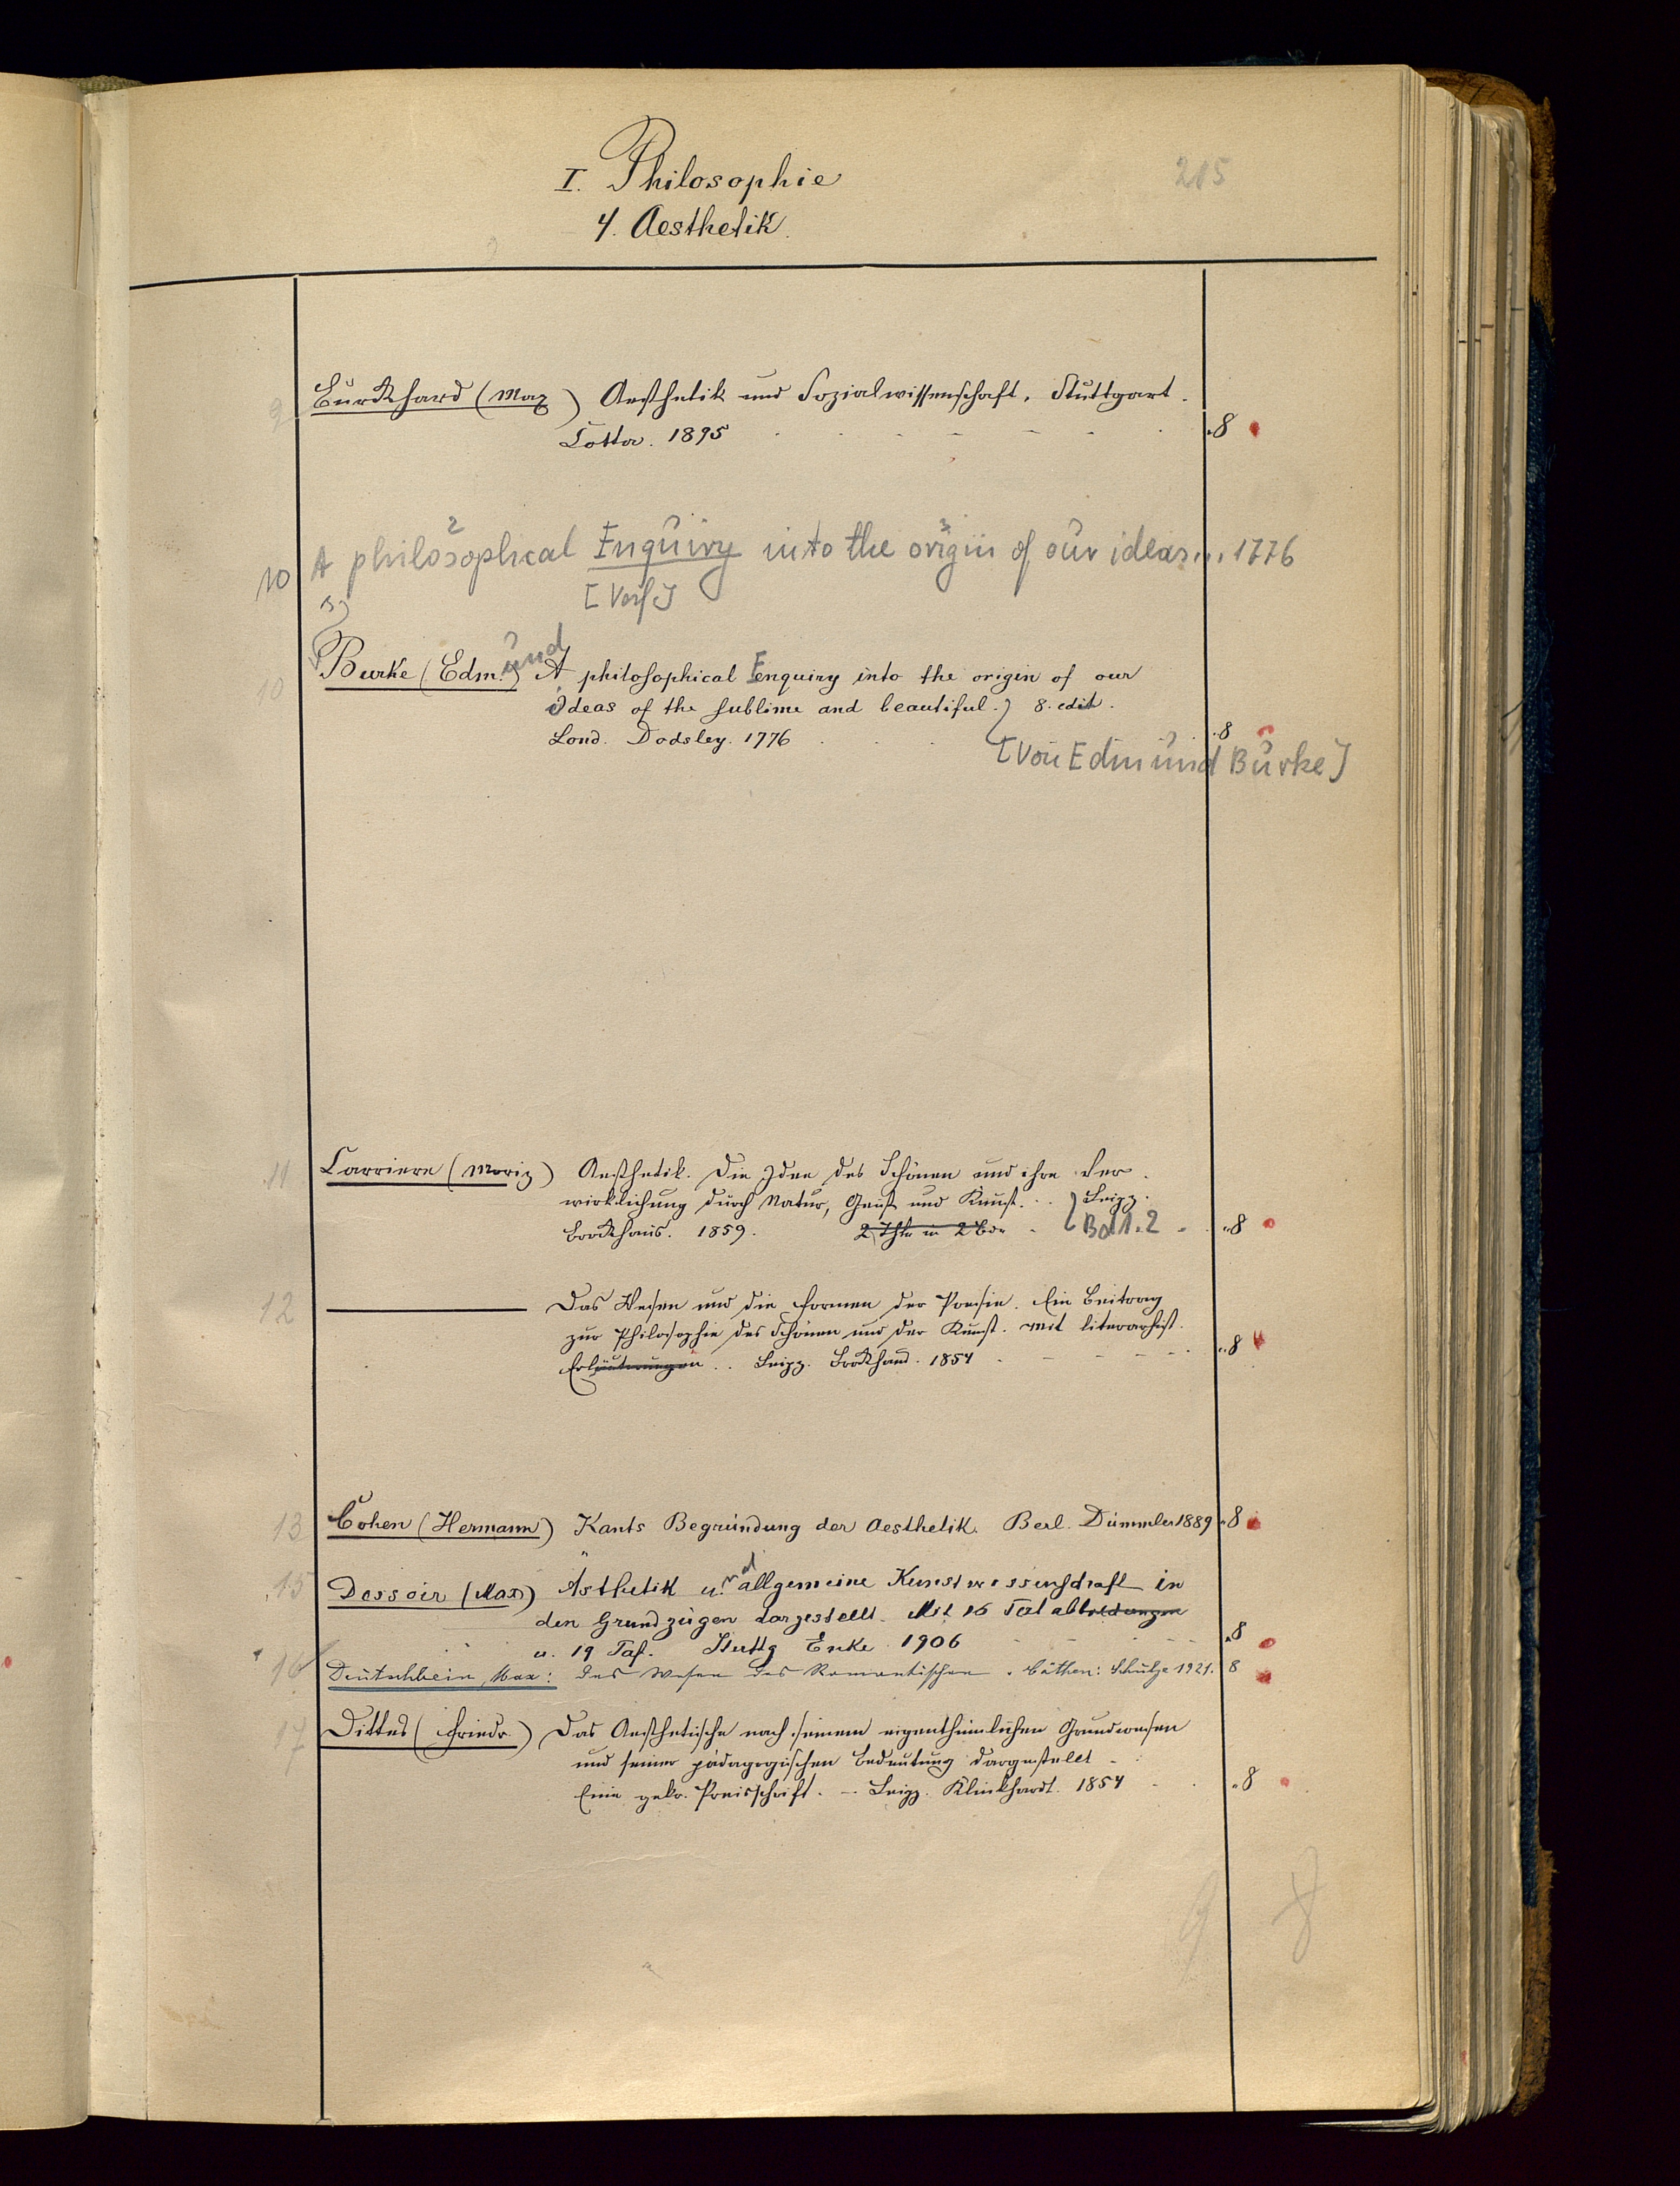 I. Philosophie
215
4. Aesthetik.
9
Burckhard (Max) Aesthetik und Sozialwissenschaft. Stuttgart.
Cotta. 1895 8
10 A philosophical Enquiry into the origin of our ideas... 1776
[Verf.]
10
Burke (Edmund) A philosophical Enquiry into the origin of our
Ideas of the sublime and beautiful. 8. edit.
Lond. Dodsley. 1776 8
[Von Edmund Burke]
11 Carriere (Moriz) Aesthetik. Die Idee des Schönen und ihre Ver-
wirklichung durch Natur, Geist und Kunst. Leipz.
Brockhaus. 1859. 2 Thle in 2 Bde Bd 1. 2 8
12 Das Wesen und die Formen der Poesie. Ein Beitrag
zur Philosophie des Schönen und der Kunst. Mit literarhist.
Erläuterungen .. Leipz. Brockhaus. 1854 8
13 Cohen (Hermann) Kants Begründung der Aesthetik. Berl. Dümmler 1889 8
15 Dessoir (Max) Ästhetik und allgemeine Kunstwissenschaft in
den Grundzügen dargestellt. Mit 16 Textabbildungen
u. 19 Taf. Stuttg Enke 1906 8
16 Deutschbein, Max: Das Wesen des Romantischen. Cöthen: Schulze 1921. 8
17 Dittes (Friedr.) Das Aesthetische nach seinem eigenthümlichen Grundwesen
und seiner pädagogischen Bedeutung dargestellt
Eine gekr. Preisschrift. - Leipz. Klinkhardt. 1854 8